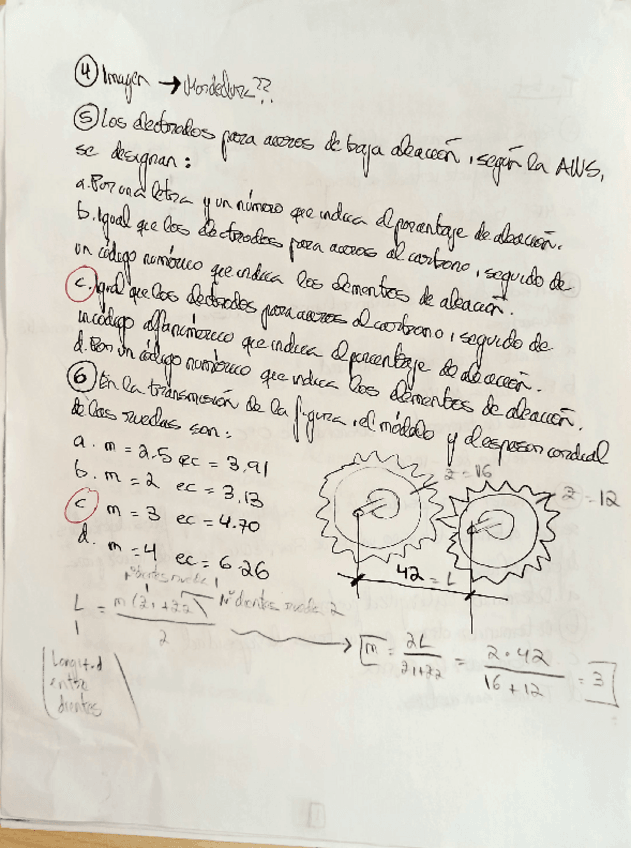 ④ Imagen → Mordedura??
⑤ Los electrodos para aceros de baja aleación, según la AWS,
se designan:
a. Por una letra y un número que indica el porcentaje de aleación.
b. Igual que los electrodos para aceros al carbono, seguido de
un código numérico que indica los elementos de aleación.
c. Igual que los electrodos para aceros al carbono, seguido de
un código alfanúmerico que indica el porcentaje de aleación.
d. Por un código numérico que indica los elementos de aleación.
⑥ En la transmisión de la figura, el módulo y el espesor cordial
de las ruedas son:
a. m = 2.5 ec = 3.91
b. m = 2 ec = 3.13
c m = 3 ec = 4.70
d. m = 4 ec = 6.26
z = 16
z = 12
42 = L
Nº dientes rueda 1
L = m(z1+z2) / 2
Nº dientes rueda 2
m = 2L / z1+z2 = 2·42 / 16+12 = 3
Longitud
entre
dientes